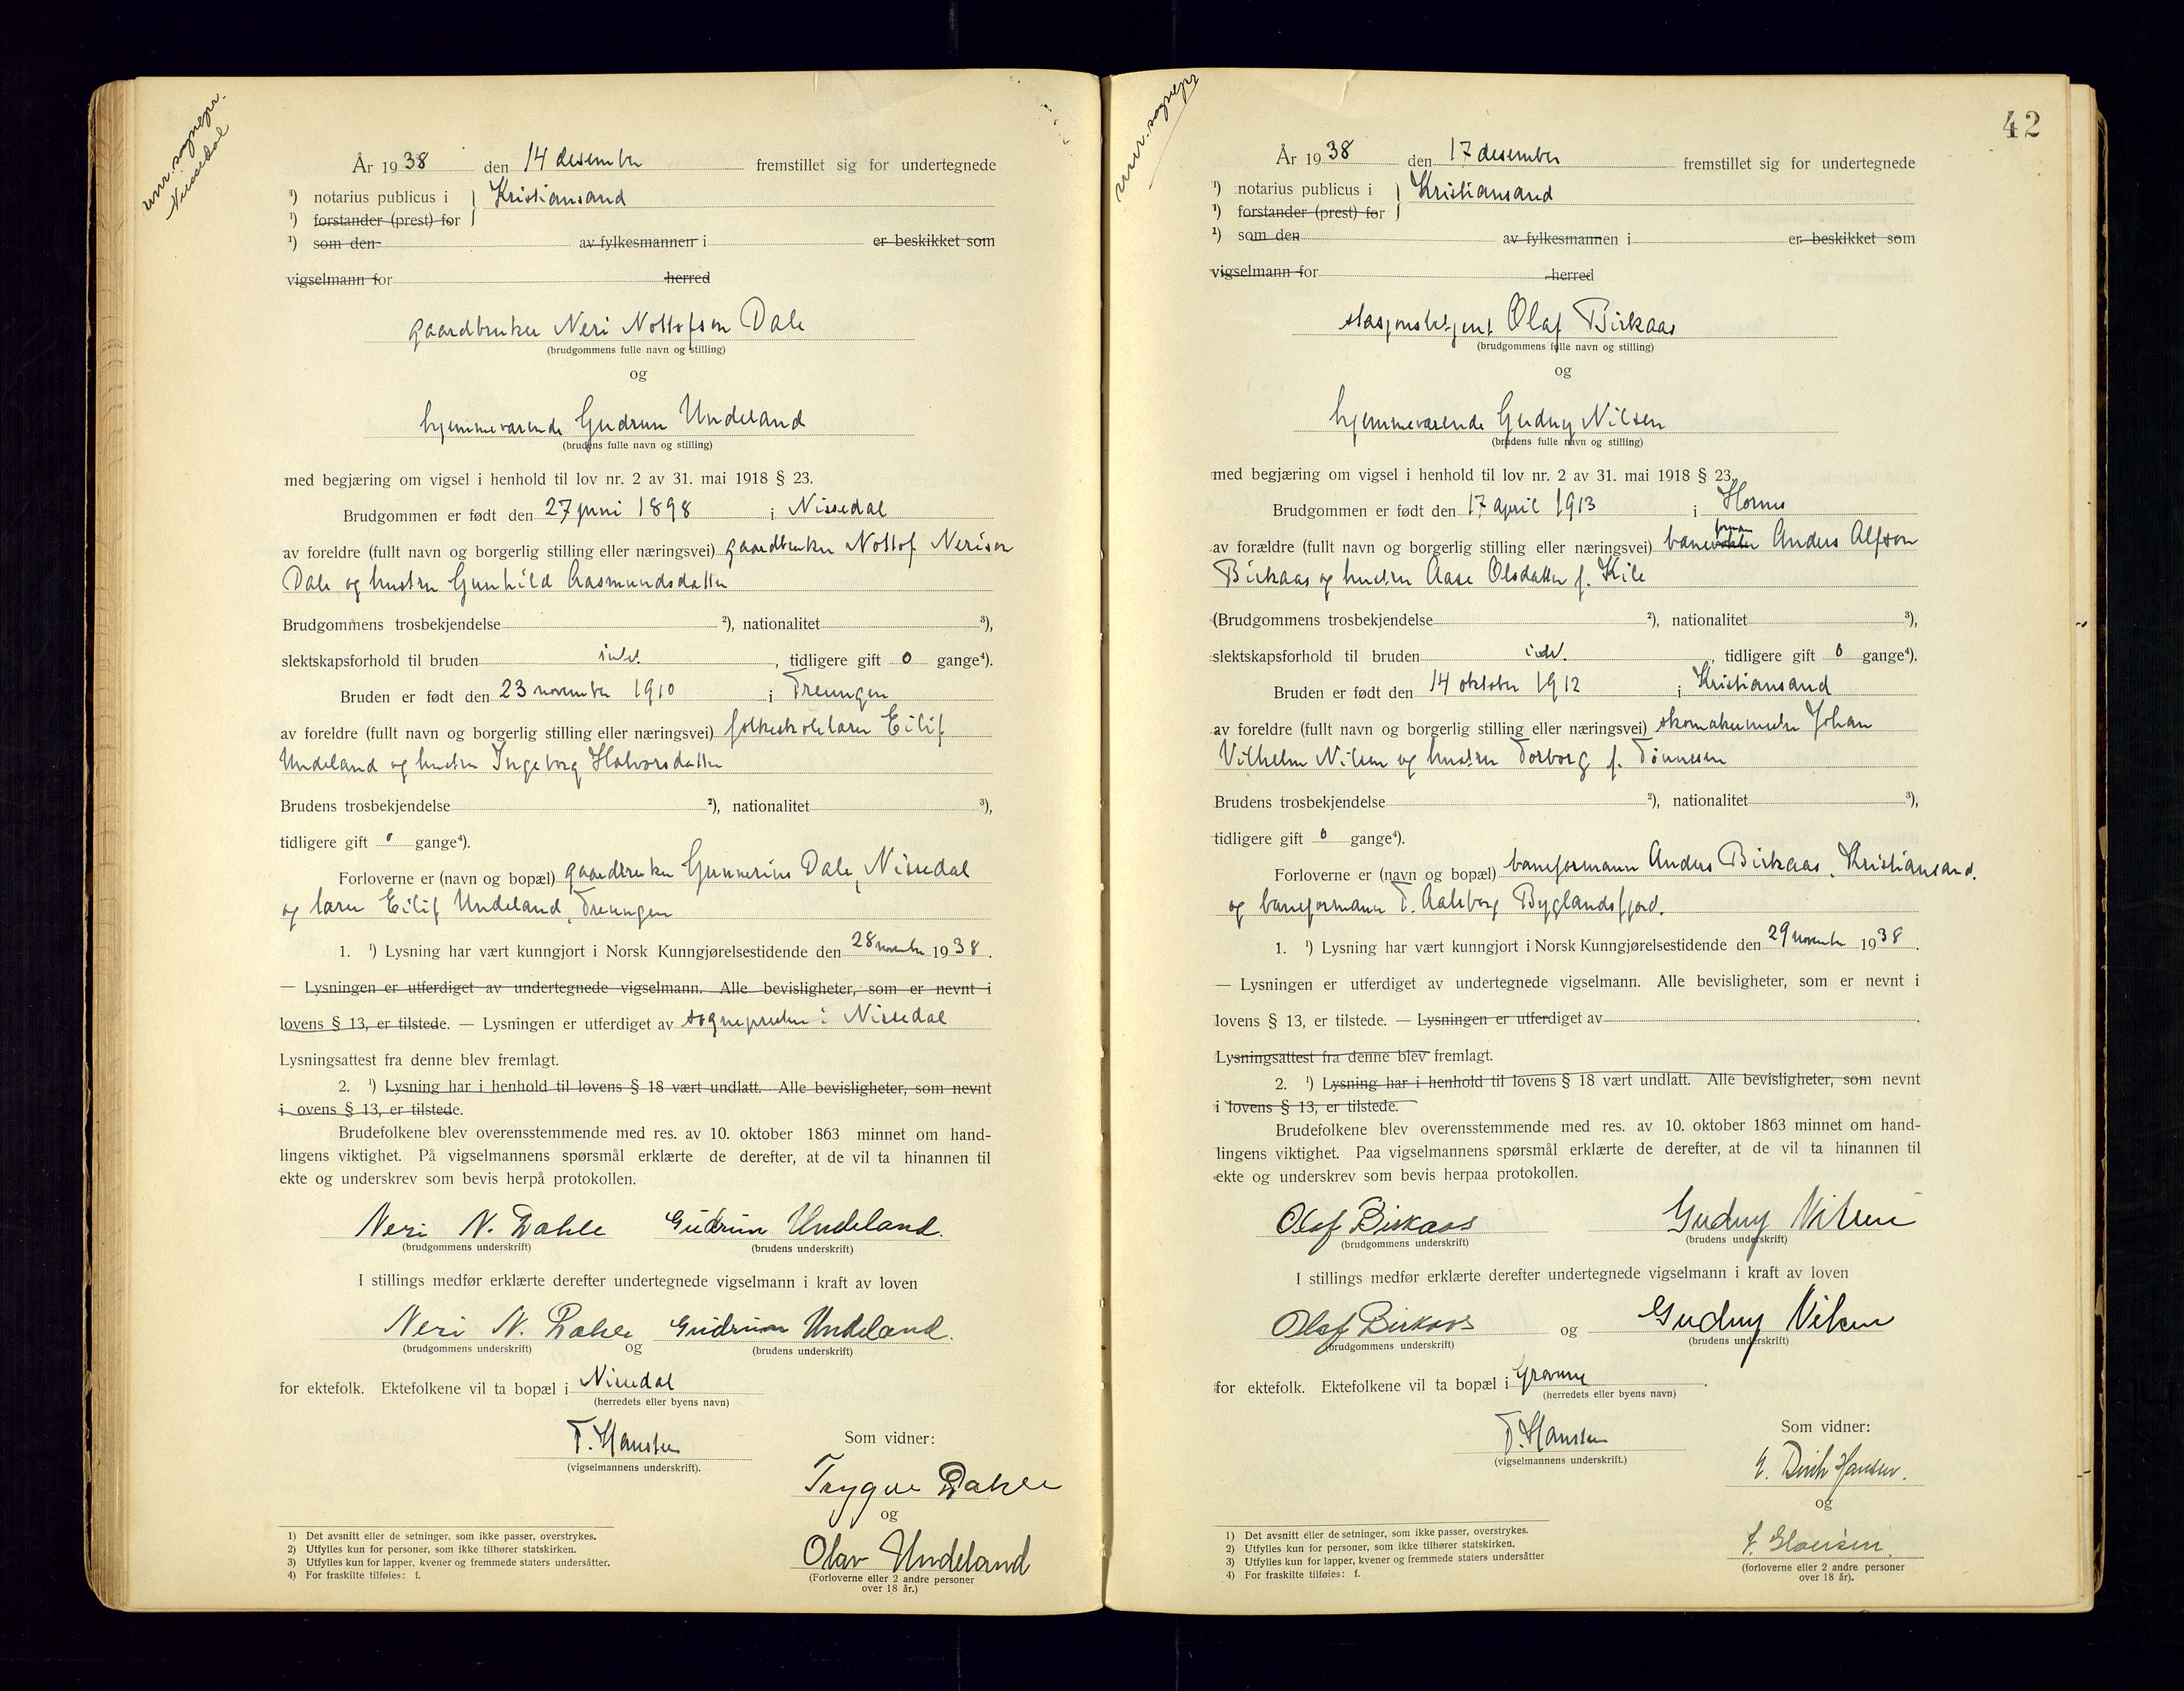 sognepr.
Nissedal
År 1938 den 14 desember fremstillet sig for undertegnede
¹) notarius publicus i } Kristiansand
¹) forstander (prest) for
¹) som den av fylkesmannen i er beskikket som
vigselmann for herred
gaardbruker Neri Nottofson Dale
(brudgommens fulle navn og stilling)
og
hjemmeværende Gudrun Undeland
(brudens fulle navn og stilling)
med begjæring om vigsel i henhold til lov nr. 2 av 31. mai 1918 § 23.
Brudgommen er født den 27 juni 1898 i Nissedal
av foreldre (fullt navn og borgerlig stilling eller næringsvei) gaardbruker Nottof Nerison
Dale og hustru Gunhild Aasmundsdatter
Brudgommens trosbekjendelse ²), nationalitet ³),
slektskapsforhold til bruden intet, tidligere gift 0 gange⁴).
Bruden er født den 23 november 1910 i Treungen
av foreldre (fullt navn og borgerlig stilling eller næringsvei) folkeskolelærer Eilif
Undeland og hustru Ingeborg Halvorsdatter
Brudens trosbekjendelse ²), nationalitet ³),
tidligere gift 0 gange⁴).
Forloverne er (navn og bopæl) gaardbruker Gunnerius Dale, Nissedal
og lærer Eilif Undeland, Treungen
1. ¹) Lysning har vært kunngjort i Norsk Kunngjørelsestidende den 28 november 1938.
— Lysningen er utferdiget av undertegnede vigselmann. Alle bevisligheter, som er nevnt i
lovens § 13, er tilstede. — Lysningen er utferdiget av sogneprsten i Nissedal
Lysningsattest fra denne blev fremlagt.
2. ¹) Lysning har i henhold til lovens § 18 vært undlatt. Alle bevisligheter, som nevnt
i ovens § 13, er tilstede.
Brudefolkene blev overensstemmende med res. av 10. oktober 1863 minnet om hand-
lingens viktighet. På vigselmannens spørsmål erklærte de derefter, at de vil ta hinannen til
ekte og underskrev som bevis herpå protokollen.
Neri N. Dahle Gudrun Undeland.
(brudgommens underskrift) (brudens underskrift)
I stillings medfør erklærte derefter undertegnede vigselmann i kraft av loven
Neri N. Dahle og Gudrun Undeland.
(brudgommens underskrift) (brudens underskrift)
for ektefolk. Ektefolkene vil ta bopæl i Nissedal
(herredets eller byens navn)
T. Hansten
(vigselmannens underskrift).
Som vidner:
Trygve Dahle
og
Olav Undeland
(Forloverne eller 2 andre personer
over 18 år.)
1) Det avsnitt eller de setninger, som ikke passer, overstrykes.
2) Utfylles kun for personer, som ikke tilhører statskirken.
3) Utfylles kun for lapper, kvener og fremmede staters undersåtter.
4) For fraskilte tilføies: f.
sognepr
42
År 1938 den 17 desember fremstillet sig for undertegnede
¹) notarius publicus i } Kristiansand
¹) forstander (prest) for
¹) som den av fylkesmannen i er beskikket som
vigselmann for herred
stasjonsbetjent Olaf Birkaas
(brudgommens fulle navn og stilling)
og
hjemmeværende Gudny Nilsen
(brudens fulle navn og stilling)
med begjæring om vigsel i henhold til lov nr. 2 av 31. mai 1918 § 23.
Brudgommen er født den 17 april 1913 i Hornes
av forældre (fullt navn og borgerlig stilling eller næringsvei) baneforman Anders Alfson
Birkaas og hustru Aase Olsdatter f. Kile
(Brudgommens trosbekjendelse ²), nationalitet ³),
slektskapsforhold til bruden intet., tidligere gift 0 gange⁴).
Bruden er født den 14 oktober 1912 i Kristiansand
av foreldre (fullt navn og borgerlig stilling eller næringsvei) skomakermester Johan
Vilhelm Nilsen og hustru Torborg f. Tønnesen
Brudens trosbekjendelse ²), nationalitet ³),
tidligere gift 0 gange⁴).
Forloverne er (navn og bopæl) baneformann Anders Birkaas, Kristiansand.
og baneformann T. Aakeborg Byglandsfjord.
1. ¹) Lysning har vært kunngjort i Norsk Kunngjørelsestidende den 29 november 1938.
— Lysningen er utferdiget av undertegnede vigselmann. Alle bevisligheter, som er nevnt i
lovens § 13, er tilstede. — Lysningen er utferdiget av
Lysningsattest fra denne blev fremlagt.
2. ¹) Lysning har i henhold til lovens § 18 vært undlatt. Alle bevisligheter, som nevnt
i lovens § 13, er tilstede.
Brudefolkene blev overensstemmende med res. av 10. oktober 1863 minnet om hand-
lingens viktighet. Paa vigselmannens spørsmål erklærte de derefter, at de vil ta hinannen til
ekte og underskrev som bevis herpaa protokollen.
Olaf Birkaas Gudny Nilsen
(brudgommens underskrift) (brudens underskrift)
I stillings medfør erklærte derefter undertegnede vigselmann i kraft av loven
Olaf Birkaas og Gudny Nilsen
(brudgommens underskrift) (brudens underskrift)
for ektefolk. Ektefolkene vil ta bopæl i Grovane.
(herredets eller byens navn)
T. Hansten
(vigselmannens underskrift.)
Som vidner:
Hansen.
og
(forloverne eller 2 andre personer
over 18 år).
1) Det avsnitt eller de setninger, som ikke passer, overstrykes.
2) Utfylles kun for personer, som ikke tilhører statskirken.
3) Utfylles kun for lapper, kvener og fremmede staters undersåtter
4) For fraskilte tilføies: f.